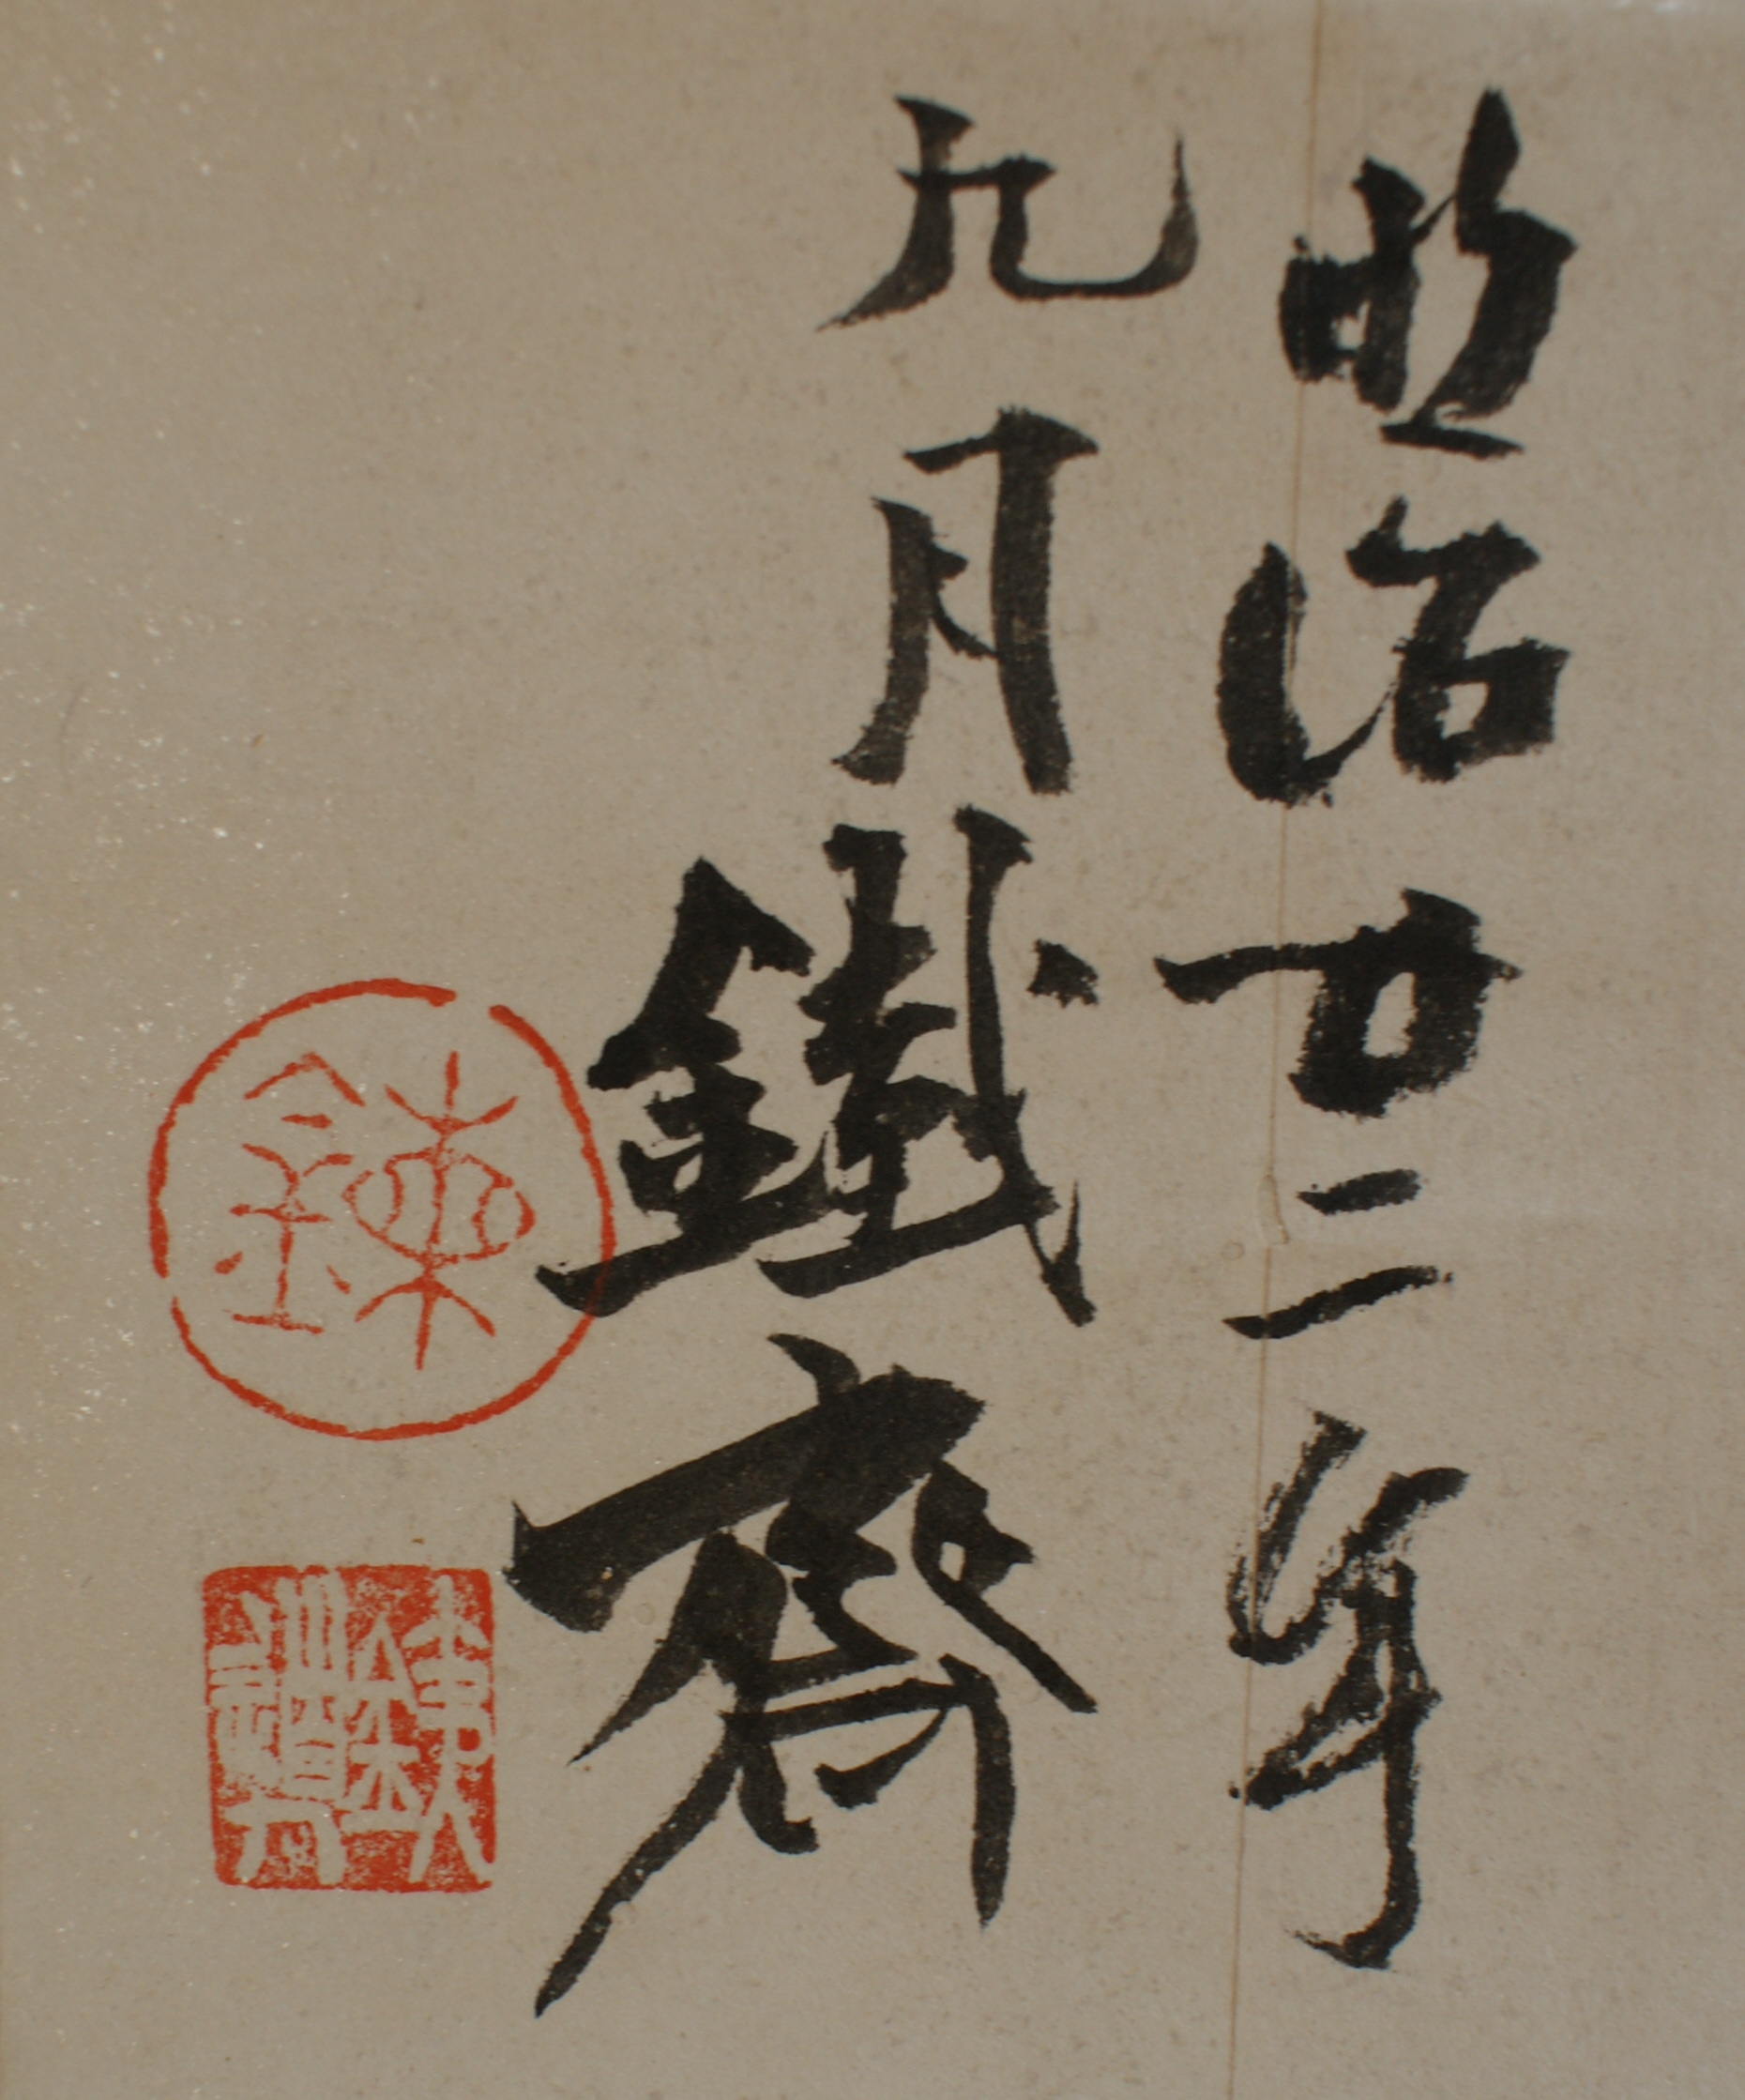 明治廿二年
九月鐵齋
鍊